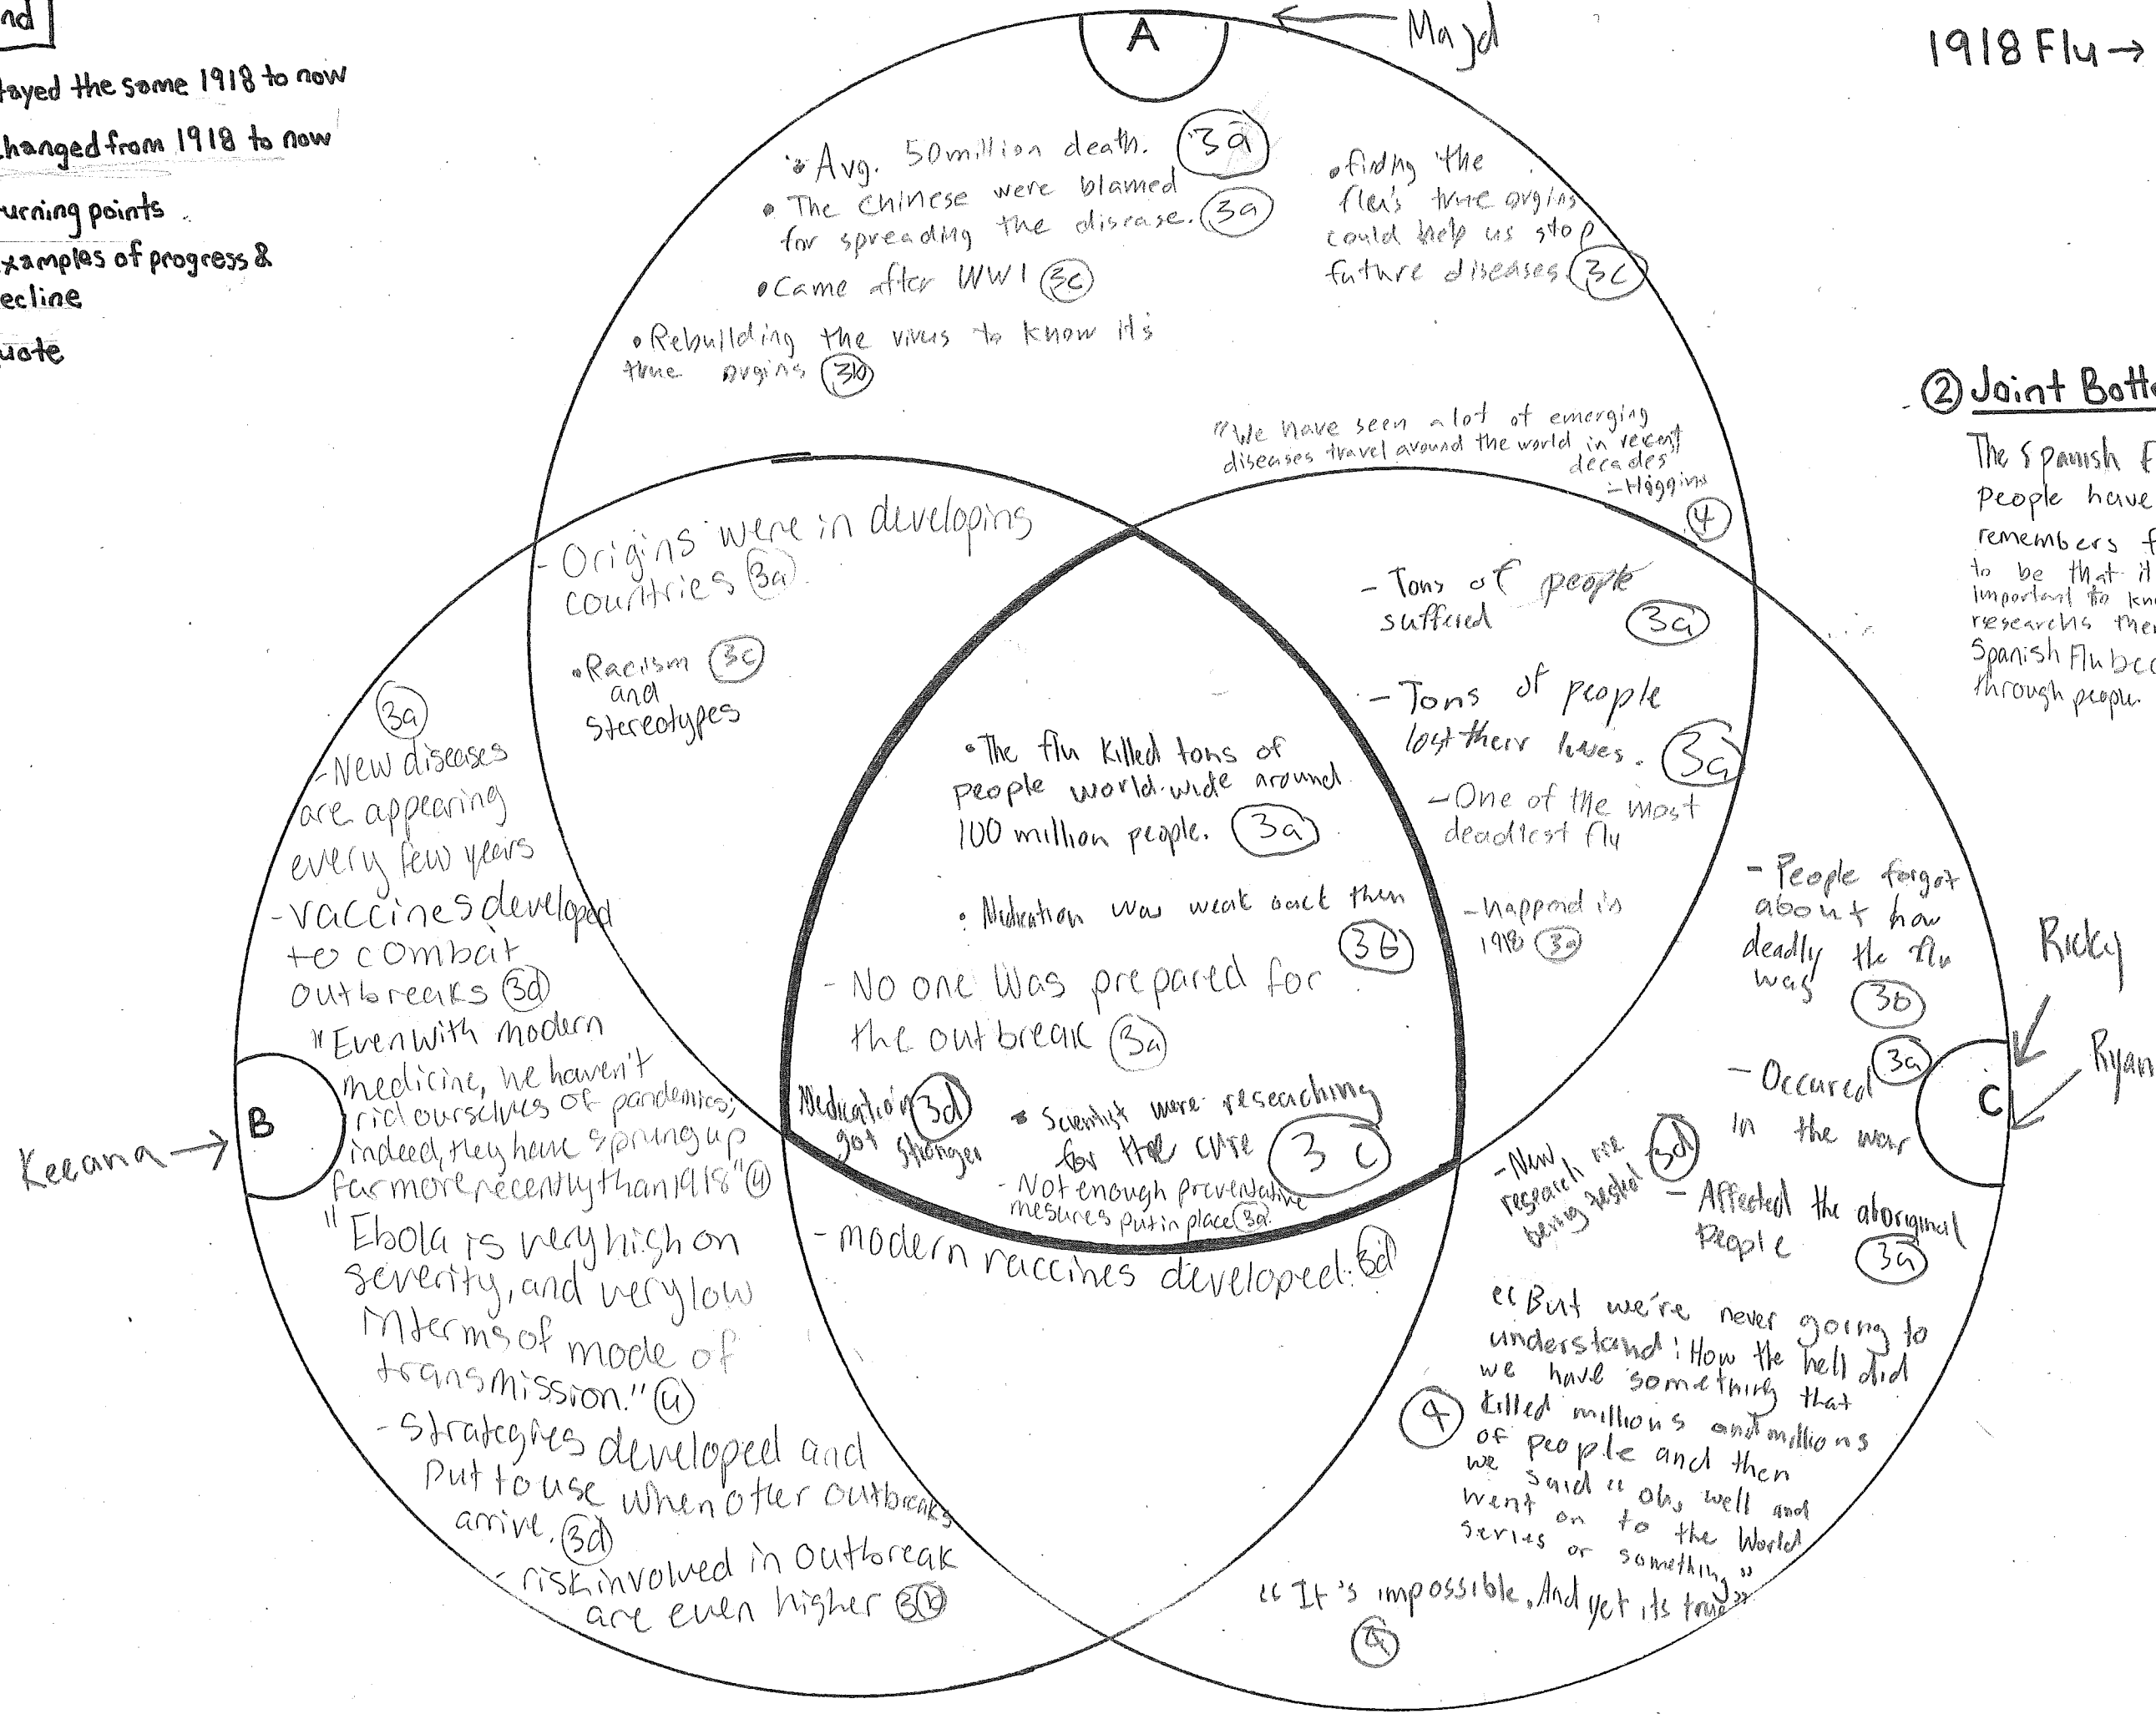 nd
tayed the same 1918 to now
changed from 1918 to now
urning points
xamples of progress &
ecline
uote
A
Majd
1918 Flu →
• Avg. 50 million death. 3a
• The Chinese were blamed
for spreading the disease. 3a
• Came after WW1 3c
• Rebuilding the virus to know it's
true orgins 3b
• finding the
flu's true orgins
could help us stop
future diseases. 3c
"We have seen a lot of emerging
diseases travel around the world in recent
decades"
- Higgins
4
② Joint Botto
The Spanish F
People have
remembers f
to be that it
important to kn
researchs the
Spanish Flu bec
through people.
- Origins were in developing
countries 3a
• Racism 3c
and
stereotypes
- Tons of people
suffered 3a
- Tons of people
lost their lives. 3a
- One of the most
deadliest flu
- happend in
1918 3a
• The flu killed tons of
people world-wide around
100 million people. 3a
• Medication was weak back then
3b
- No one was prepared for
the outbreak 3a
Medication 3d
got stronger
• Scientist were reseaching
for the cure 3c
- Not enough preventative
mesures put in place 3a
- modern vaccines developed. 3d
3a
- New diseases
are appearing
every few years
- vaccines developed
to combat
outbreaks 3d
"Even with modern
medicine, we haven't
rid ourselves of pandemics;
indeed, they have sprung up
far more recently than 1918" 4
"Ebola is very high on
severity, and very low
in terms of mode of
transmission." 4
- strategies developed and
put to use when other outbreaks
arrive. 3d
- risk involved in outbreak
are even higher 3b
B
Keeana →
- People forgot
about how
deadly the flu
was 3b
- Occured 3a
in the war
- New
research are
being tested 3d
- Affected the aboriginal
people 3a
"But we're never going to
understand: How the hell did
we have something that
4 killed millions and millions
of people and then
we said "oh, well and
went on to the World
series or something"
"It's impossible. And yet its true"
4
C
Ricky
Ryan